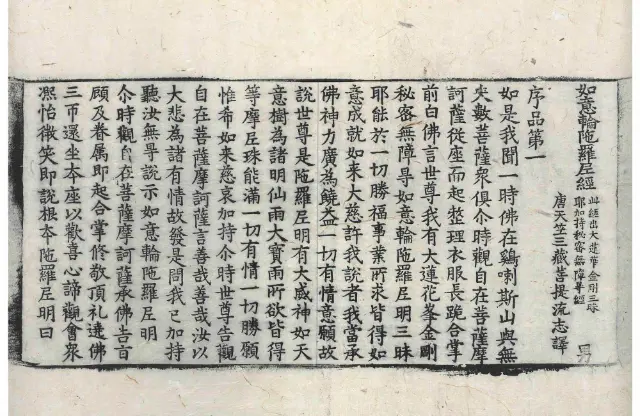 如意輪陀羅尼經 此經出大蓮華金剛三昧
耶加持秘密無障㝵經 男
唐天竺三藏菩提流志譯
序品第一
如是我聞一時佛在雞喇斯山與無
央數菩薩衆俱尒時觀自在菩薩摩
訶薩從座而起整理衣服長跪合掌
前白佛言世尊我有大蓮花峯金剛
秘密無障㝵如意輪陀羅尼明三昧
耶能於一切勝福事業所求皆得如
意成就如來大慈許我說者我當承
佛神力廣為饒益一切有情意願故
說世尊是陀羅尼明有大威神如天
意樹為諸明仙雨大寶雨所欲皆得
等摩尼珠能滿一切有情一切勝願
惟希如來慈哀加持尒時世尊告觀
自在菩薩摩訶薩言善哉善哉汝以
大悲為諸有情故發是問我已加持
聽汝無㝵說示如意輪陀羅尼明
尒時觀自在菩薩摩訶薩承佛告旨
顧及眷属即起合掌修敬頂礼遶佛
三帀還坐夲座以歡喜心諦觀會衆
凞怡微笑即說根夲陀羅尼明曰